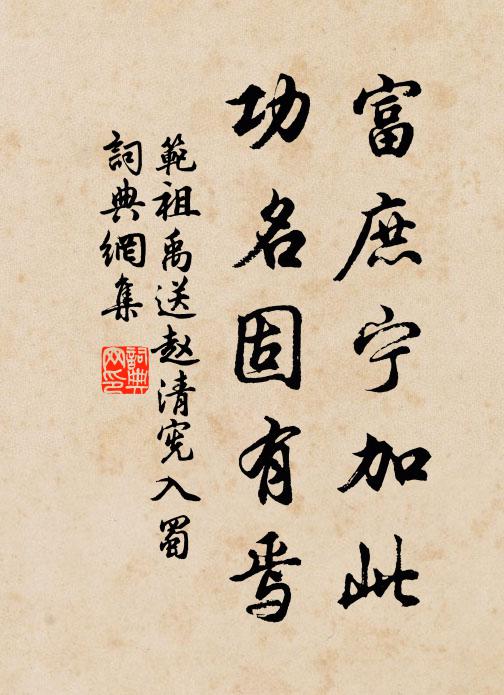 富庶宁加此
功名固有焉
範祖禹送赵清宪入蜀
詞典網集
詞典网印